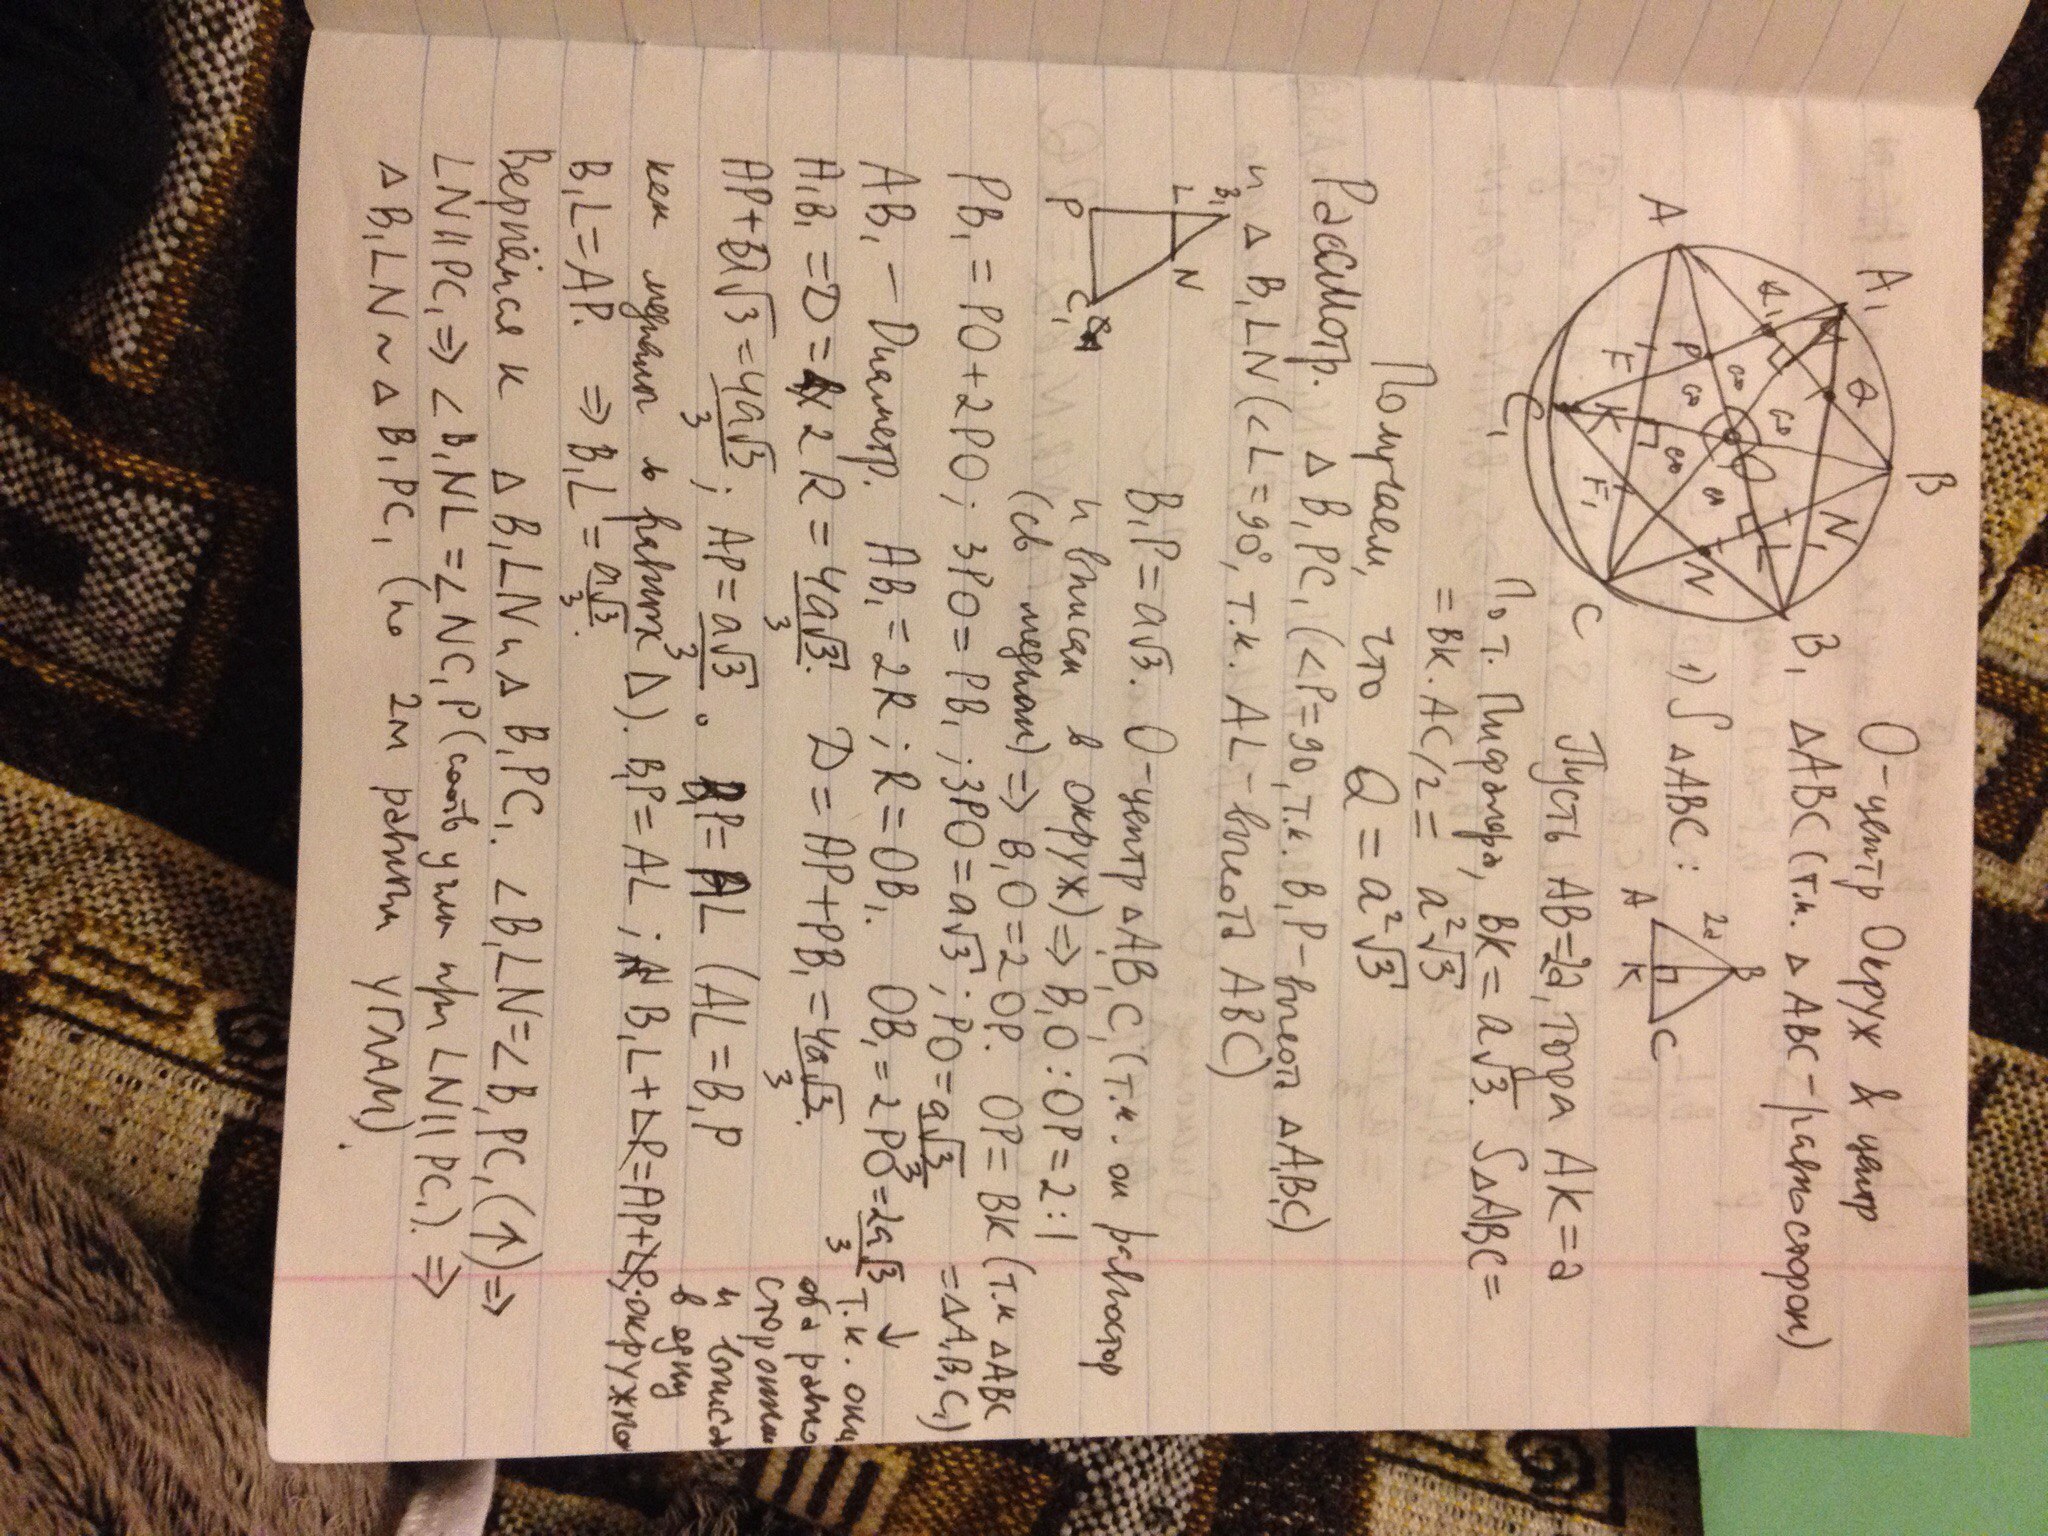 О-центр Окруж & центр
△ABC (т.к. △ABC - равносторон)
A₁
B
A
B₁
C
C₁
Q
S₁
N₁
P
O
L
F
K
F₁
N
60
60
60
60
1) S △ABC:
2a
B
A
K
C
Пусть AB=2a, тогда AK=a
По т. Пифагора, BK=a√3. S△ABC=
=BK·AC/2= a²√3
Получаем, что Q=a²√3
Рассмотр. △B₁PC₁(<P=90, т.к. B₁P-высота △A₁B₁C₁)
и △B₁LN(<L=90°, т.к. AL-высота ABC)
B₁
L
N
P
C₁
B₁P=a√3. О-центр △A₁B₁C₁(т.к. он равностор
и вписан в окруж) => B₁O:OP=2:1
(св медиан) => B₁O=2OP. OP=BK(т.к △ABC
=△A₁B₁C₁)
PB₁=PO+2PO; 3PO=PB₁; 3PO=a√3; PO=a√3/3
AB₁-Диаметр. AB₁=2R; R=OB₁. OB₁=2PO=2a√3/3
↓ т.к. они
оба равно
сторонни
и вписан
в одну
окружно
A₁B₁=D=2R=4a√3/3. D=AP+PB₁=4a√3/3.
AP+a√3=4a√3/3; AP=a√3/3. B₁P=AL (AL=B₁P
как медианы в равных △). B₁P=AL; B₁L+LP=AP+LP;
B₁L=AP. => B₁L=a√3/3.
Вернёмся к △B₁LN и △B₁PC₁. <B₁LN=<B₁PC₁(↑)=>
LN||PC₁=><B₁NL=<NC₁P(соотв углы при LN||PC₁). =>
△B₁LN~△B₁PC₁ (по 2м равным углам).